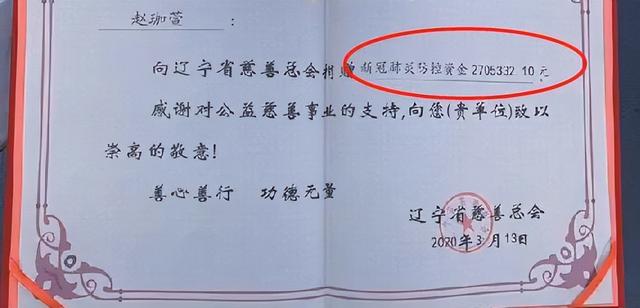 赵珈萱 :
向辽宁省慈善总会捐赠新冠肺炎防控资金2705332.10元
感谢对公益慈善事业的支持,向您(贵单位)致以
崇高的敬意!
善心善行 功德无量
辽宁省慈善总会
2020年3月13日